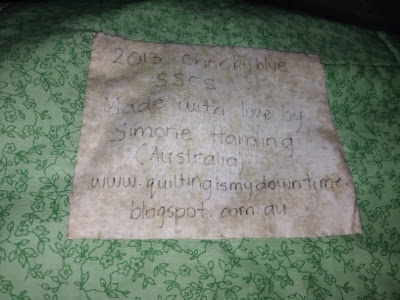 2013 chookyblue
SSCS
Made with love by
Simone Harding
(Australia)
www.quiltingismydowntime.
blogspot.com.au